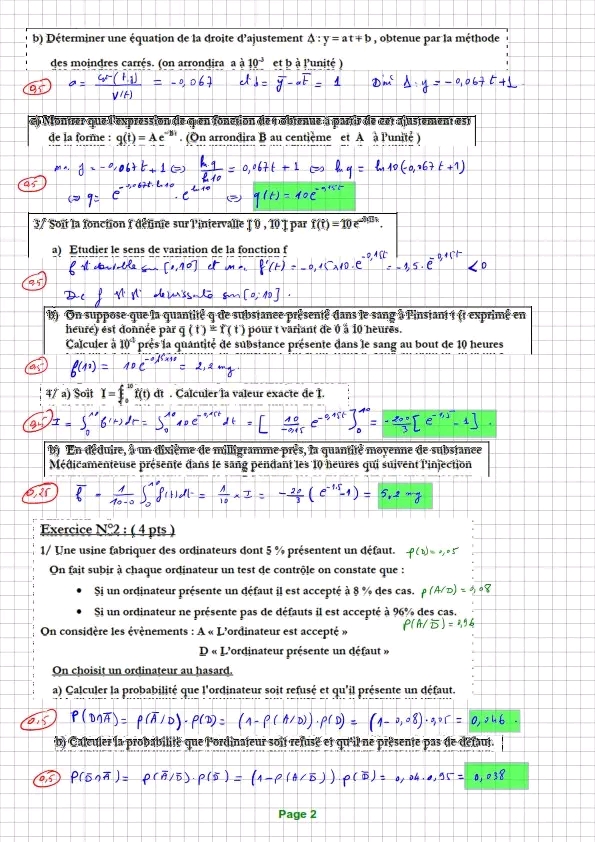 b) Déterminer une équation de la droite d'ajustement Δ : y = a t + b , obtenue par la méthode
des moindres carrés. (on arrondira a à 10⁻³ et b à l'unité )
0,5 a = Cov(t,y)/V(t) = -0,067 et b = ȳ - a t̄ = 1 D'où Δ: y = -0,067 t + 1.
c) Montrer que l'expression de q en fonction de t obtenue à partir de cet ajustement est
de la forme : q(t) = A e⁻ᴮᵗ . (On arrondira B au centième et A à l'unité )
0,5 on a y = -0,067 t + 1 ⇔ ln q / ln 10 = -0,067 t + 1 ⇔ ln q = ln 10 (-0,067 t + 1)
⇔ q = e^(-0,067t.ln10) . e^(ln10) ⇔ q(t) = 10 e^(-0,15t)
3/ Soit la fonction f définie sur l'intervalle [ 0 , 10 ] par f(t) = 10 e^(-0,15 t).
a) Etudier le sens de variation de la fonction f
f est dérivable sur [0,10] et on a f'(t) = -0,15×10.e^(-0,15t) = -1,5.e^(-0,15t) < 0
0,5
Donc f est st décroissante sur [0,10].
b) On suppose que la quantité q de substance présenté dans le sang à l'instant t (t exprimé en
heure) est donnée par q ( t ) = f ( t ) pour t variant de 0 à 10 heures.
Calculer à 10⁻¹ près la quantité de substance présente dans le sang au bout de 10 heures
0,5 f(10) = 10 e^(-0,15×10) = 2,2 mg.
4/ a) Soit I = ∫₀¹⁰ f(t) dt . Calculer la valeur exacte de I.
I = ∫₀¹⁰ f(t) dt = ∫₀¹⁰ 10 e^(-0,15t) dt = [ 10/-0,15 e^(-0,15t) ]₀¹⁰ = -200/3 [ e^(-1,5) - 1 ] .
b) En déduire, à un dixième de milligramme près, la quantité moyenne de substance
Médicamenteuse présente dans le sang pendant les 10 heures qui suivent l'injection
0,25 f̄ = 1/(10-0) ∫₀¹⁰ f(t) dt = 1/10 × I = -20/3 ( e^(-1,5) - 1 ) = 5,2 mg
Exercice N°2 : ( 4 pts )
1/ Une usine fabriquer des ordinateurs dont 5 % présentent un défaut. p(D) = 0,05
On fait subir à chaque ordinateur un test de contrôle on constate que :
• Si un ordinateur présente un défaut il est accepté à 8 % des cas. p(A/D) = 0,08
• Si un ordinateur ne présente pas de défauts il est accepté à 96% des cas.
p(A/D̄) = 0,96
On considère les évènements : A « L'ordinateur est accepté »
D « L'ordinateur présente un défaut »
On choisit un ordinateur au hasard.
a) Calculer la probabilité que l'ordinateur soit refusé et qu'il présente un défaut.
0,5 P(D∩Ā) = p(Ā/D).p(D) = (1-p(A/D)).p(D) = (1-0,08).0,05 = 0,046 .
b) Calculer la probabilité que l'ordinateur soit refusé et qu'il ne présente pas de défaut.
0,5 P(D̄∩Ā) = p(Ā/D̄).p(D̄) = (1-p(A/D̄)) p(D̄) = 0,04.0,95 = 0,038
Page 2